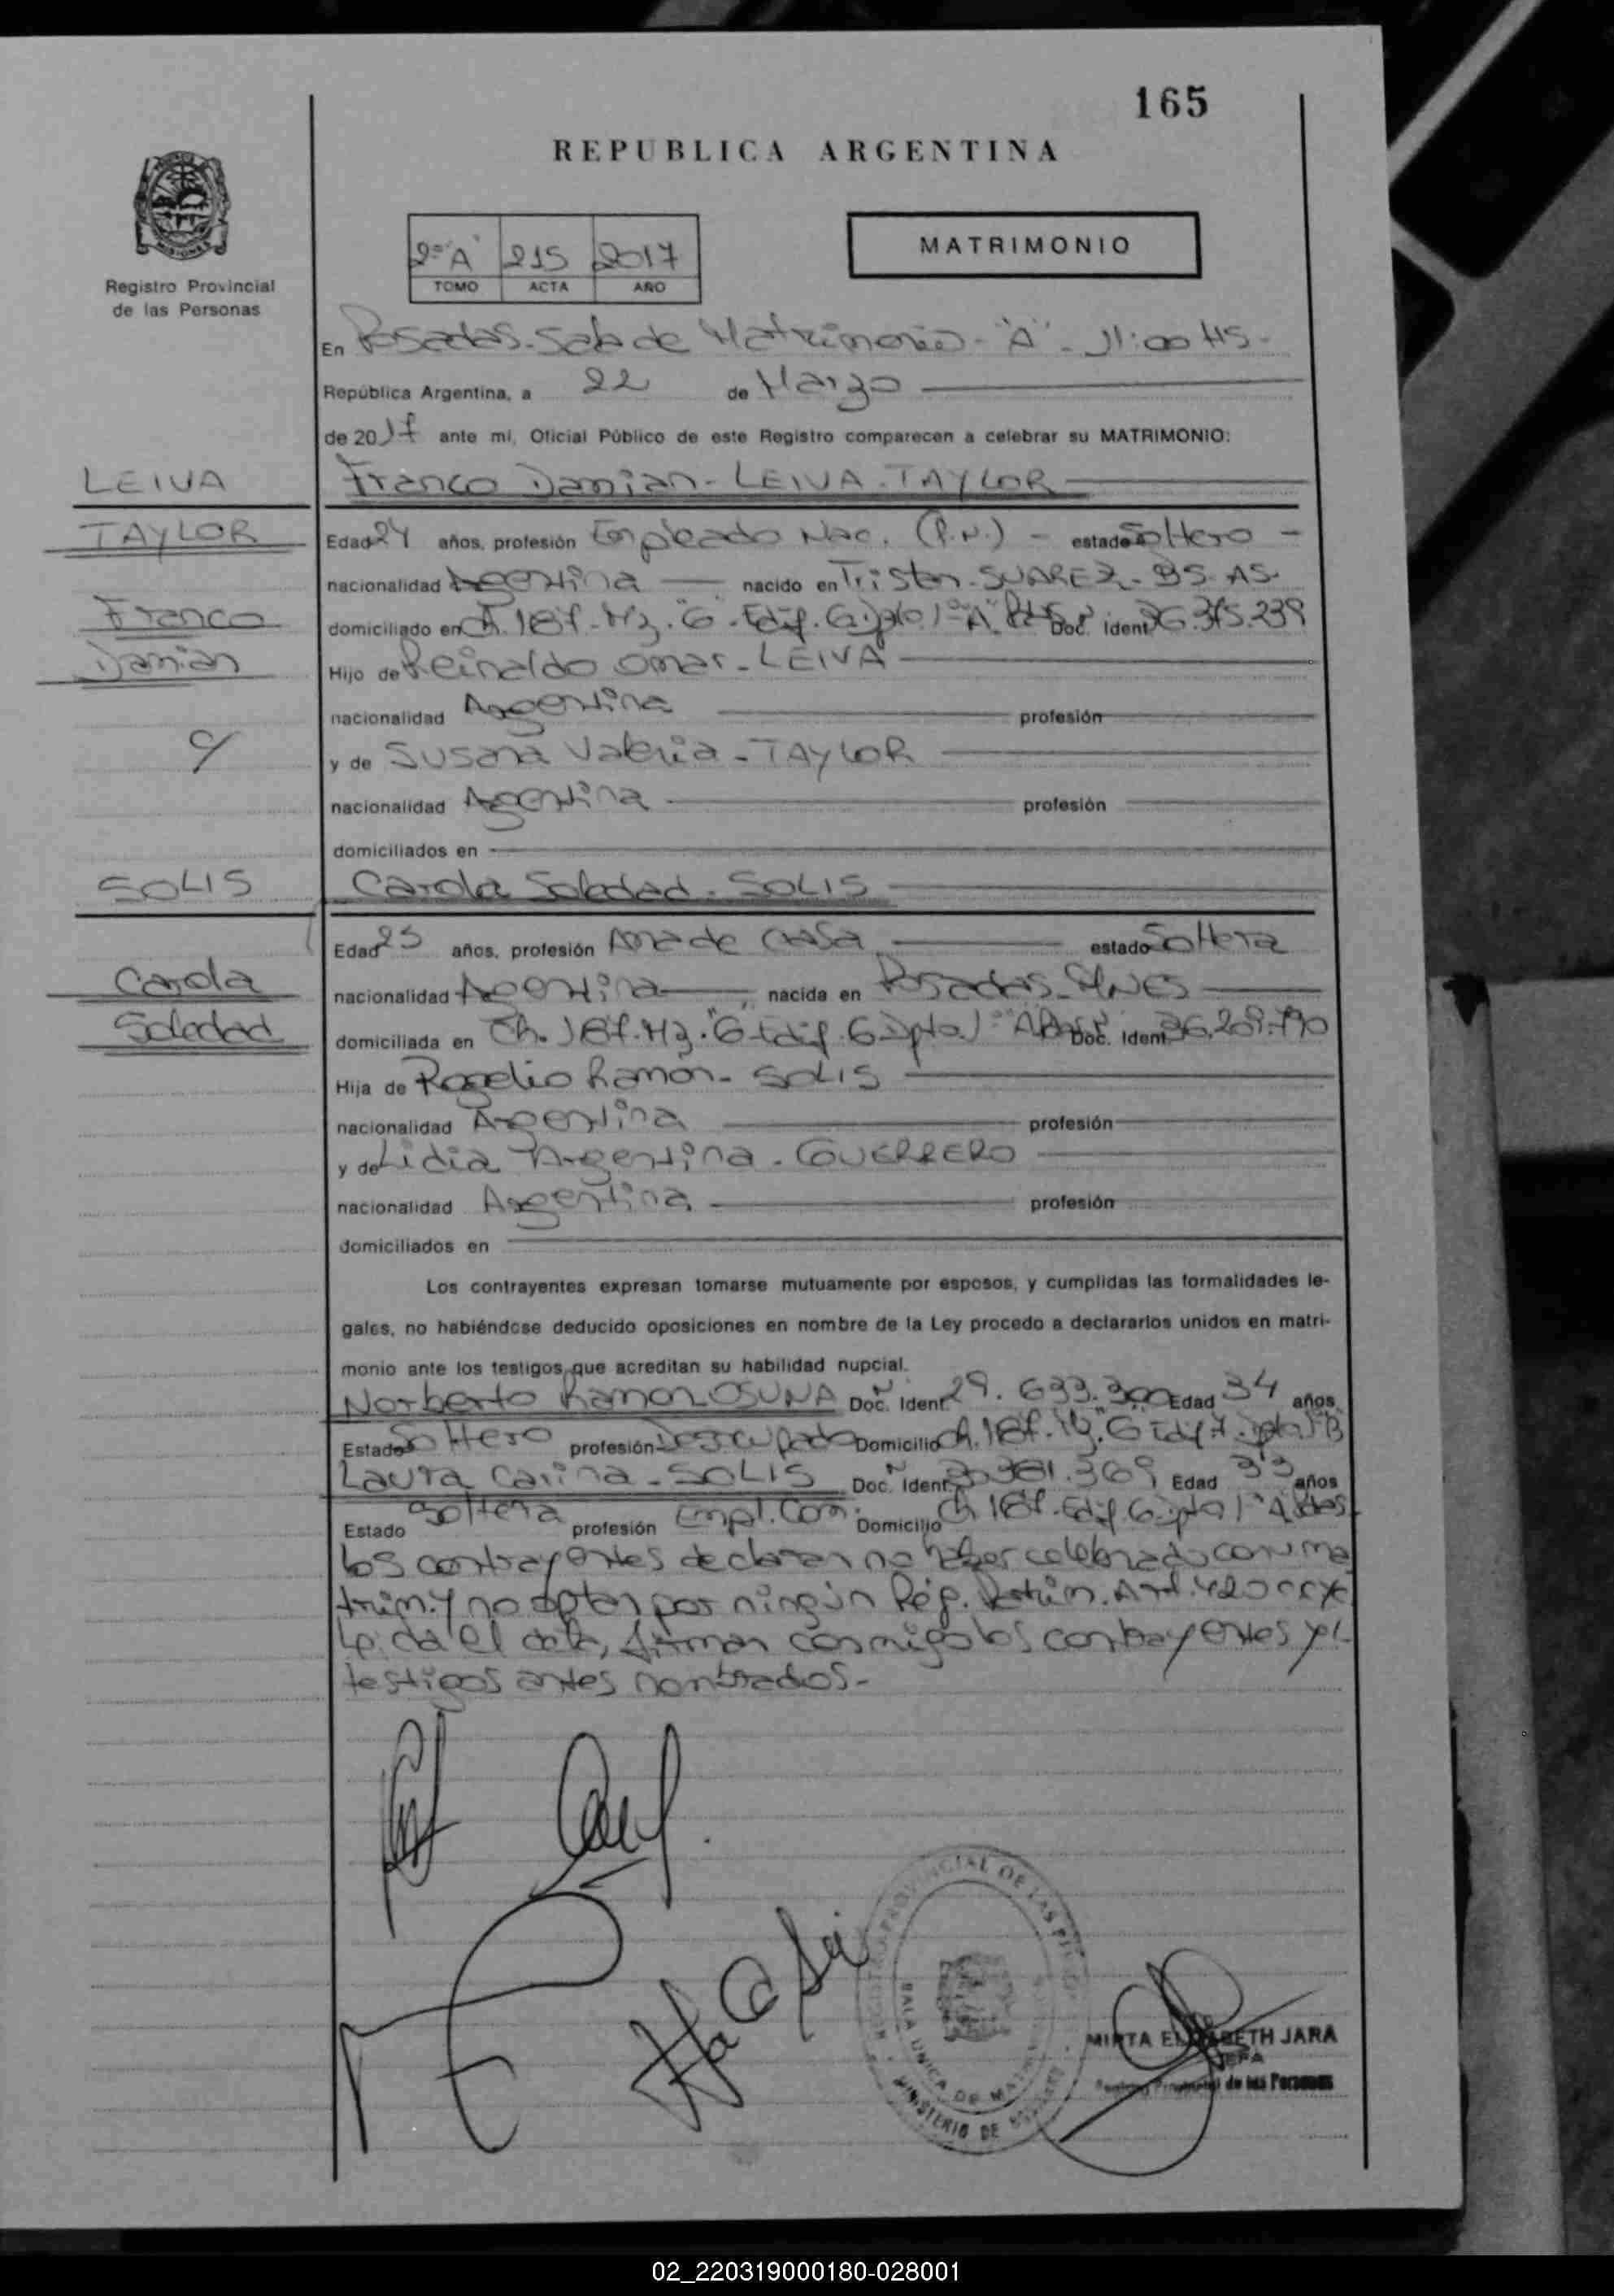 165
REPUBLICA ARGENTINA
MATRIMONIO
2º "A" 215 2017
TOMO ACTA AÑO
Registro Provincial
de las Personas
En Posadas. Sala de Matrimonio - "A" - 11:00 HS -
República Argentina, a 22 de Marzo
de 2017 ante mi, Oficial Público de este Registro comparecen a celebrar su MATRIMONIO:
LEIVA
TAYLOR
Franco
Damian
c/
SOLIS
Carola
Soledad
Franco Damian - LEIVA - TAYLOR
Edad 24 años, profesión Empleado Nac. (P.N.) - estado Soltero -
nacionalidad Argentina nacido en Tristan. SUAREZ - BS. AS.
domiciliado en Ch. 187. Mz. "G". Edif. 6. Dpto 1º "A" Doc. Ident
Hijo de Reinaldo Omar - LEIVA
nacionalidad Argentina profesión
y de Susana Valeria - TAYLOR
nacionalidad Argentina profesión
domiciliados en
Carola Soledad - SOLIS
Edad 25 años, profesión Ama de Casa estado Soltera
nacionalidad Argentina nacida en Posadas - Mnes
domiciliada en Ch. 187. Mz. "G" Edif. 6 Dpto. 1º "A" Doc. Ident
Hija de Rogelio Ramón - SOLIS
nacionalidad Argentina profesión
y de Lidia Argentina - GUERRERO
nacionalidad Argentina profesión
domiciliados en
Los contrayentes expresan tomarse mutuamente por esposos, y cumplidas las formalidades le-
gales, no habiéndose deducido oposiciones en nombre de la Ley procedo a declararlos unidos en matri-
monio ante los testigos que acreditan su habilidad nupcial.
Norberto Ramon OSUNA Doc. Ident 29.633.300 Edad 34 años
Estado Soltero profesión Desocupado Domicilio Ch. 187. Mz. "G" Edif 7. Dpto 1º B
Laura Carina - SOLIS Doc. Ident Edad 33 años
Estado Soltera profesión Empl. Com. Domicilio Ch 187. Edif. 6 Dpto 1º "A"
los contrayentes declaran no haber celebrado conv. ma
trim. y no optan por ningún Rég. Patrim. Art. 420 CCyC
Leída el acta, firman conmigo los contrayentes y
testigos antes nombrados.-
REGISTRO PROVINCIAL DE LAS PERSONAS
SALA UNICA DE
MINISTERIO DE
MIRTA ELIZABETH JARA
JEFA
Registro Provincial de las Personas
02_220319000180-028001